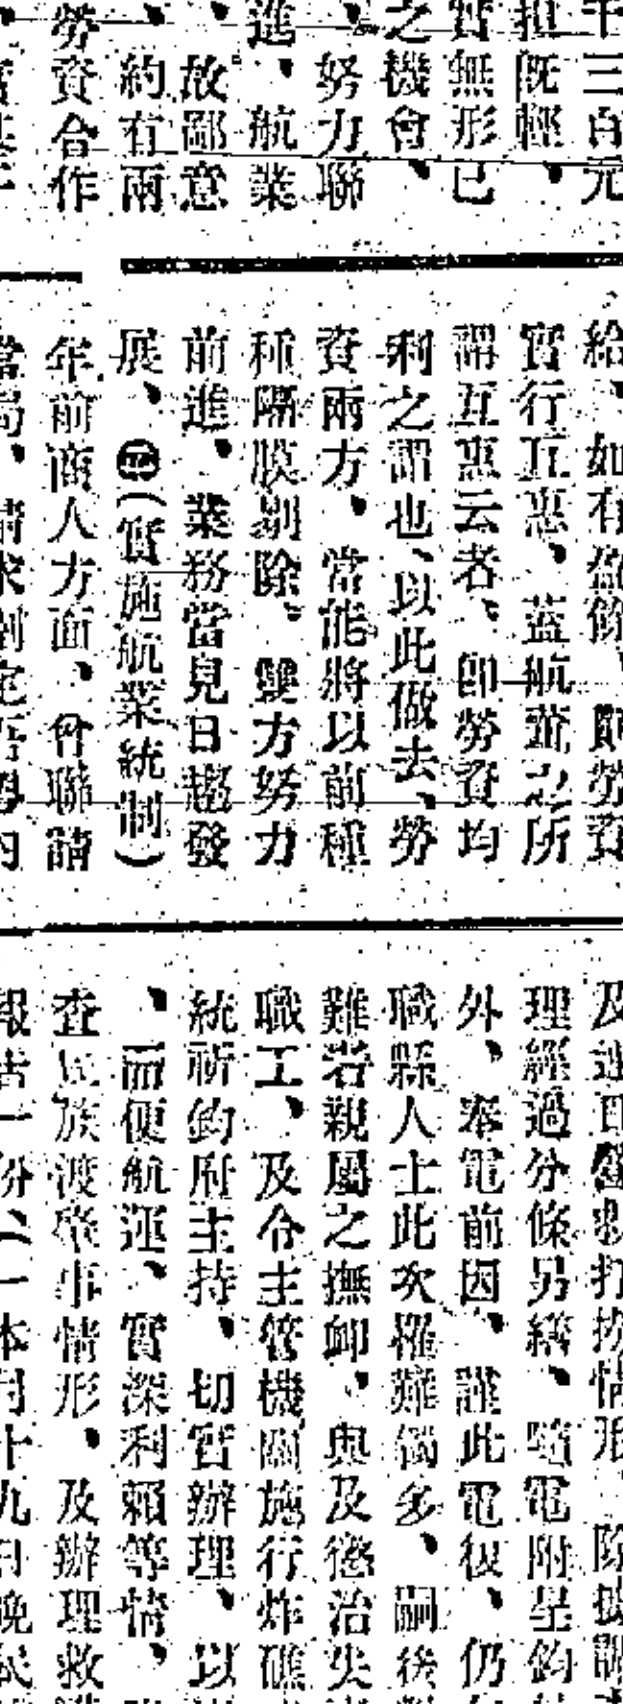 千三百元
担既輕、
實無形已
之機會、
、努力聯
進、航業
、故鄙意
、約有兩
勞資合作
給、如有盈餘、則勞資
實行互惠、蓋航業之所
謂互惠云者、卽勞資均
利之謂也、以此做去、勞
資兩方、當能將以前種
種隔膜剔除、雙方努力
前進、業務當見日趨發
展、㊁(實施航業統制)
年前商人方面、曾聯請
當局、請求劃定
及連日營救打撈情形、除
理經過分條另繕、隨電附呈鈞
外、奉電前因、謹此電復、仍
職縣人士此次罹難獨多、嗣後
難者親屬之撫卹、與及懲治失
職工、及令主管機關施行炸礁
統祈鈞府主持、切實辦理、以
、而便航運、實深利賴等情、
查民族渡肇事情形、及辦理救
報告一份、(一)本月十九日晚民